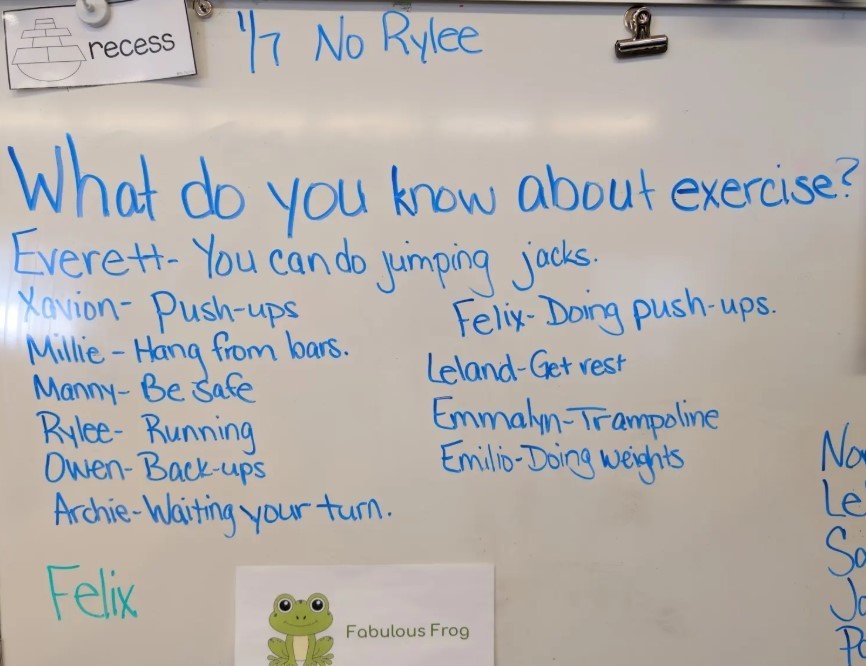 recess
1/7 No Rylee
What do you know about exercise?
Everett- You can do jumping jacks.
Xavion- Push-ups
Millie- Hang from bars.
Manny- Be safe
Rylee- Running
Owen- Back-ups
Archie- Waiting your turn.
Felix- Doing push-ups.
Leland- Get rest
Emmalyn- Trampoline
Emilio- Doing weights
Felix
Fabulous Frog